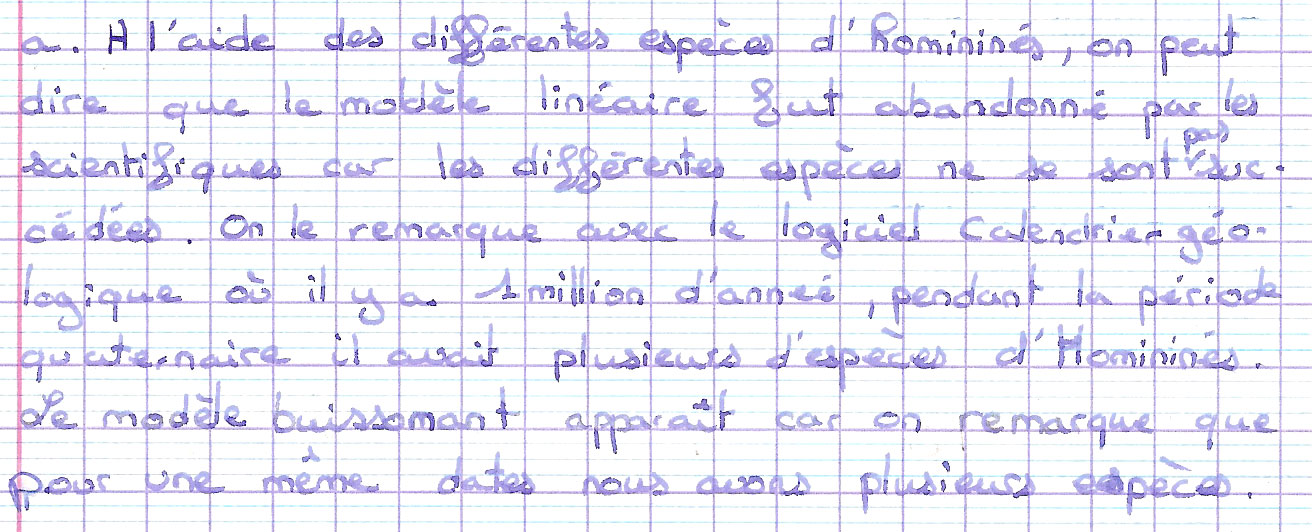 a. A l'aide des différentes espèces d'Homininés, on peut
dire que le modèle linéaire fut abandonné par les
scientifiques car les différentes espèces ne se sont pas suc-
cédées. On le remarque avec le logiciel Calendrier géo-
logique où il y a 1 million d'anneé, pendant la période
quaternaire il avait plusieurs d'espèces d'Homininés.
Le modèle buissomant apparaît car on remarque que
pour une même dates nous avons plusieurs espèces.